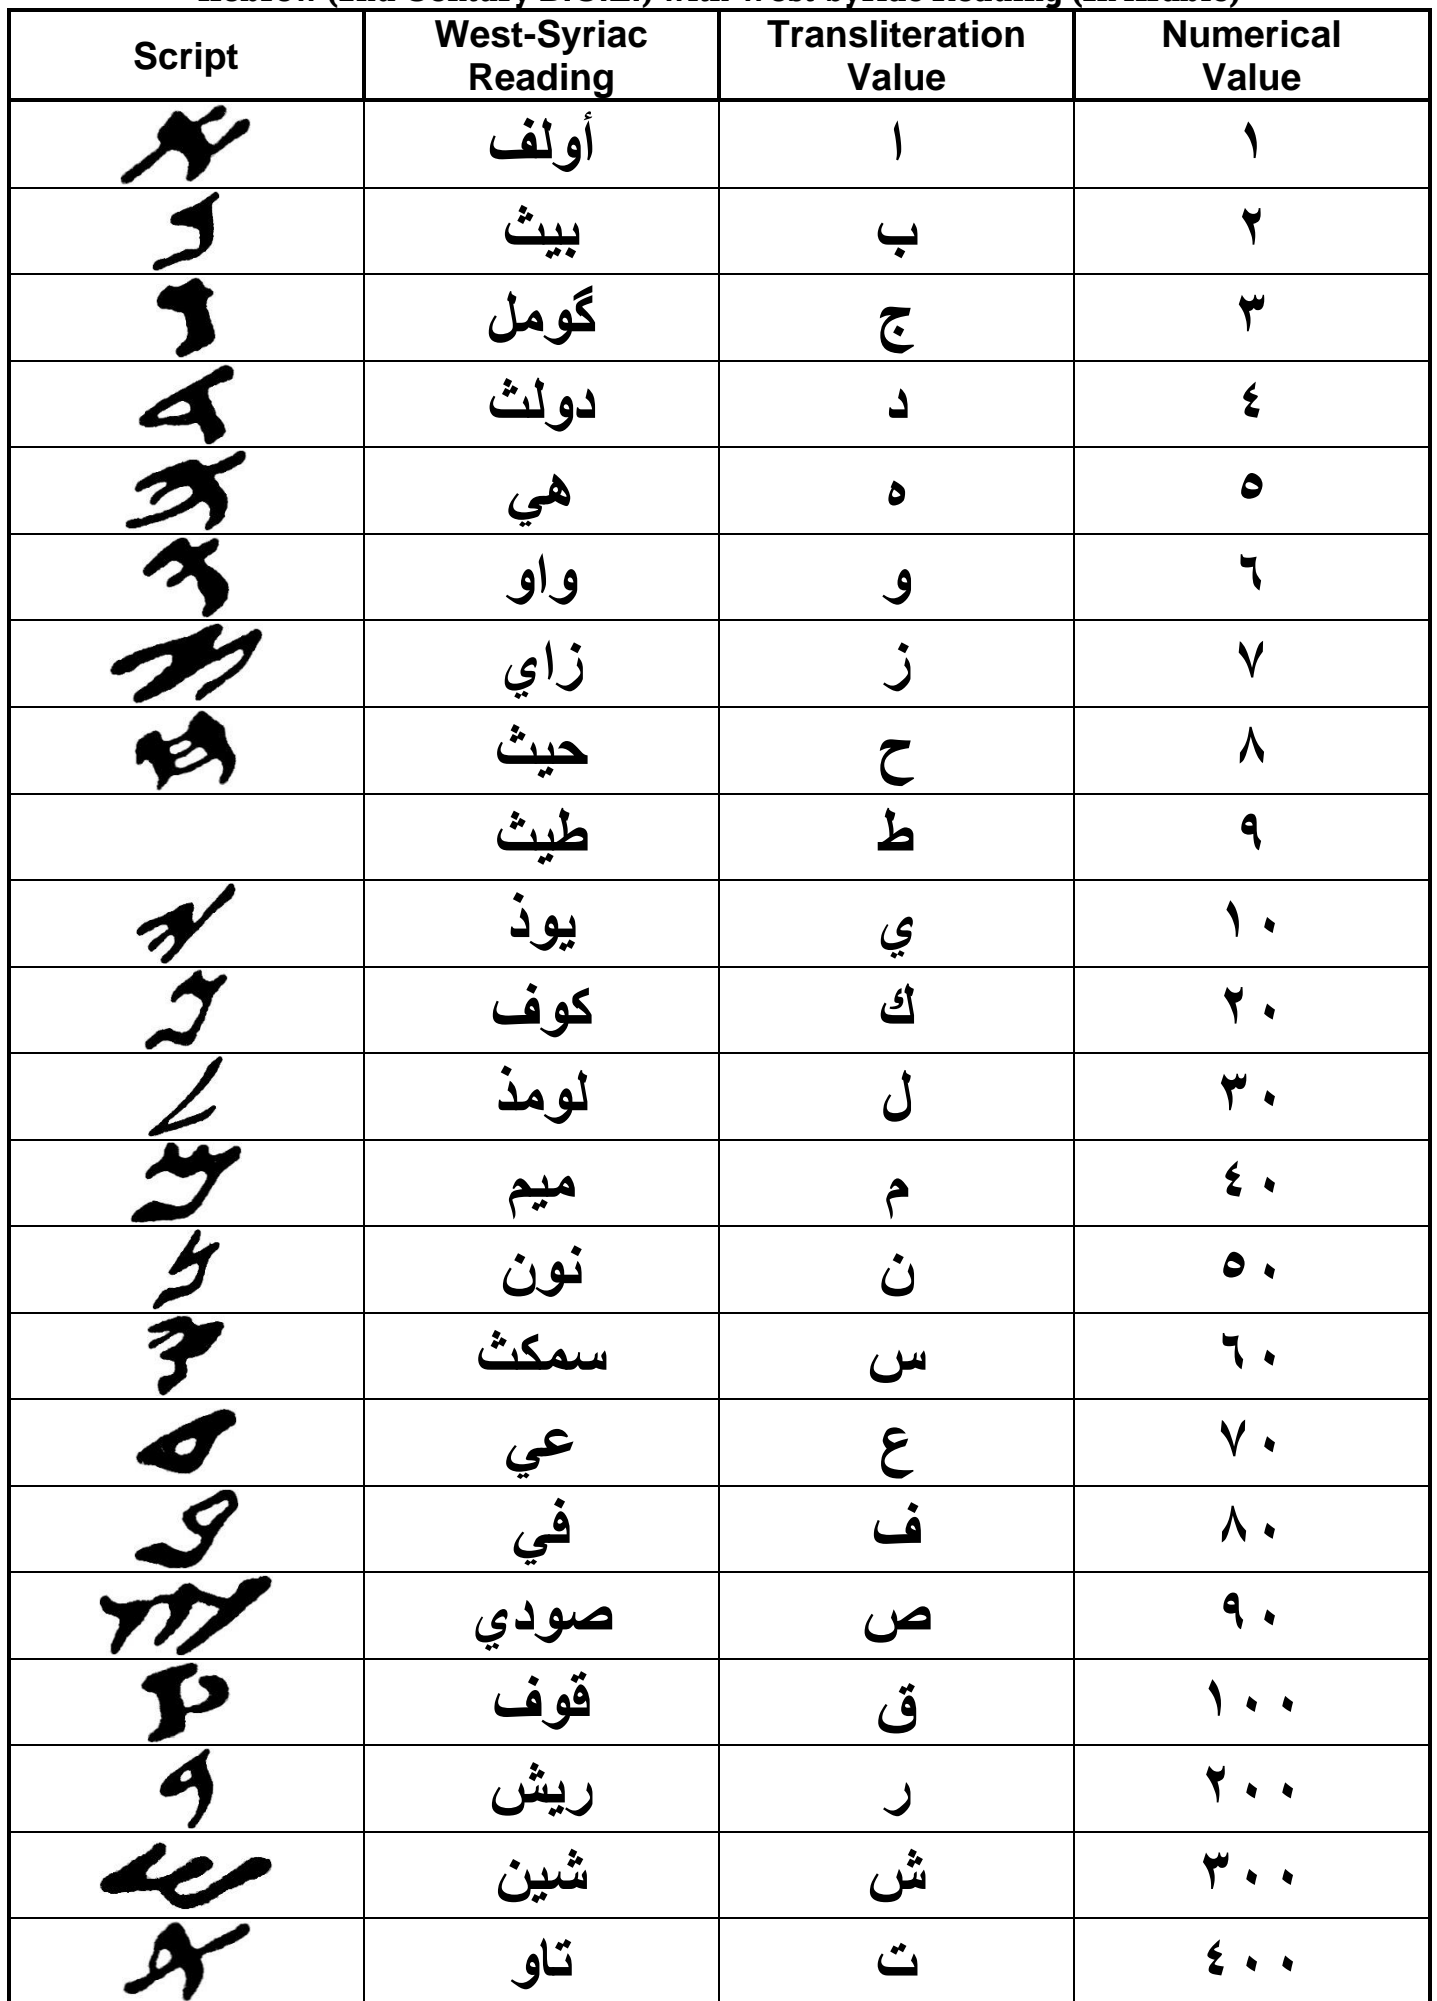 Script West-Syriac Reading Transliteration Value Numerical Value
أولف ا ١
بيث ب ٢
گومل ج ٣
دولث د ٤
هي ه ٥
واو و ٦
زاي ز ٧
حيث ح ٨
طيث ط ٩
يوذ ي ١٠
كوف ك ٢٠
لومذ ل ٣٠
ميم م ٤٠
نون ن ٥٠
سمكث س ٦٠
عي ع ٧٠
في ف ٨٠
صودي ص ٩٠
قوف ق ١٠٠
ريش ر ٢٠٠
شين ش ٣٠٠
تاو ت ٤٠٠